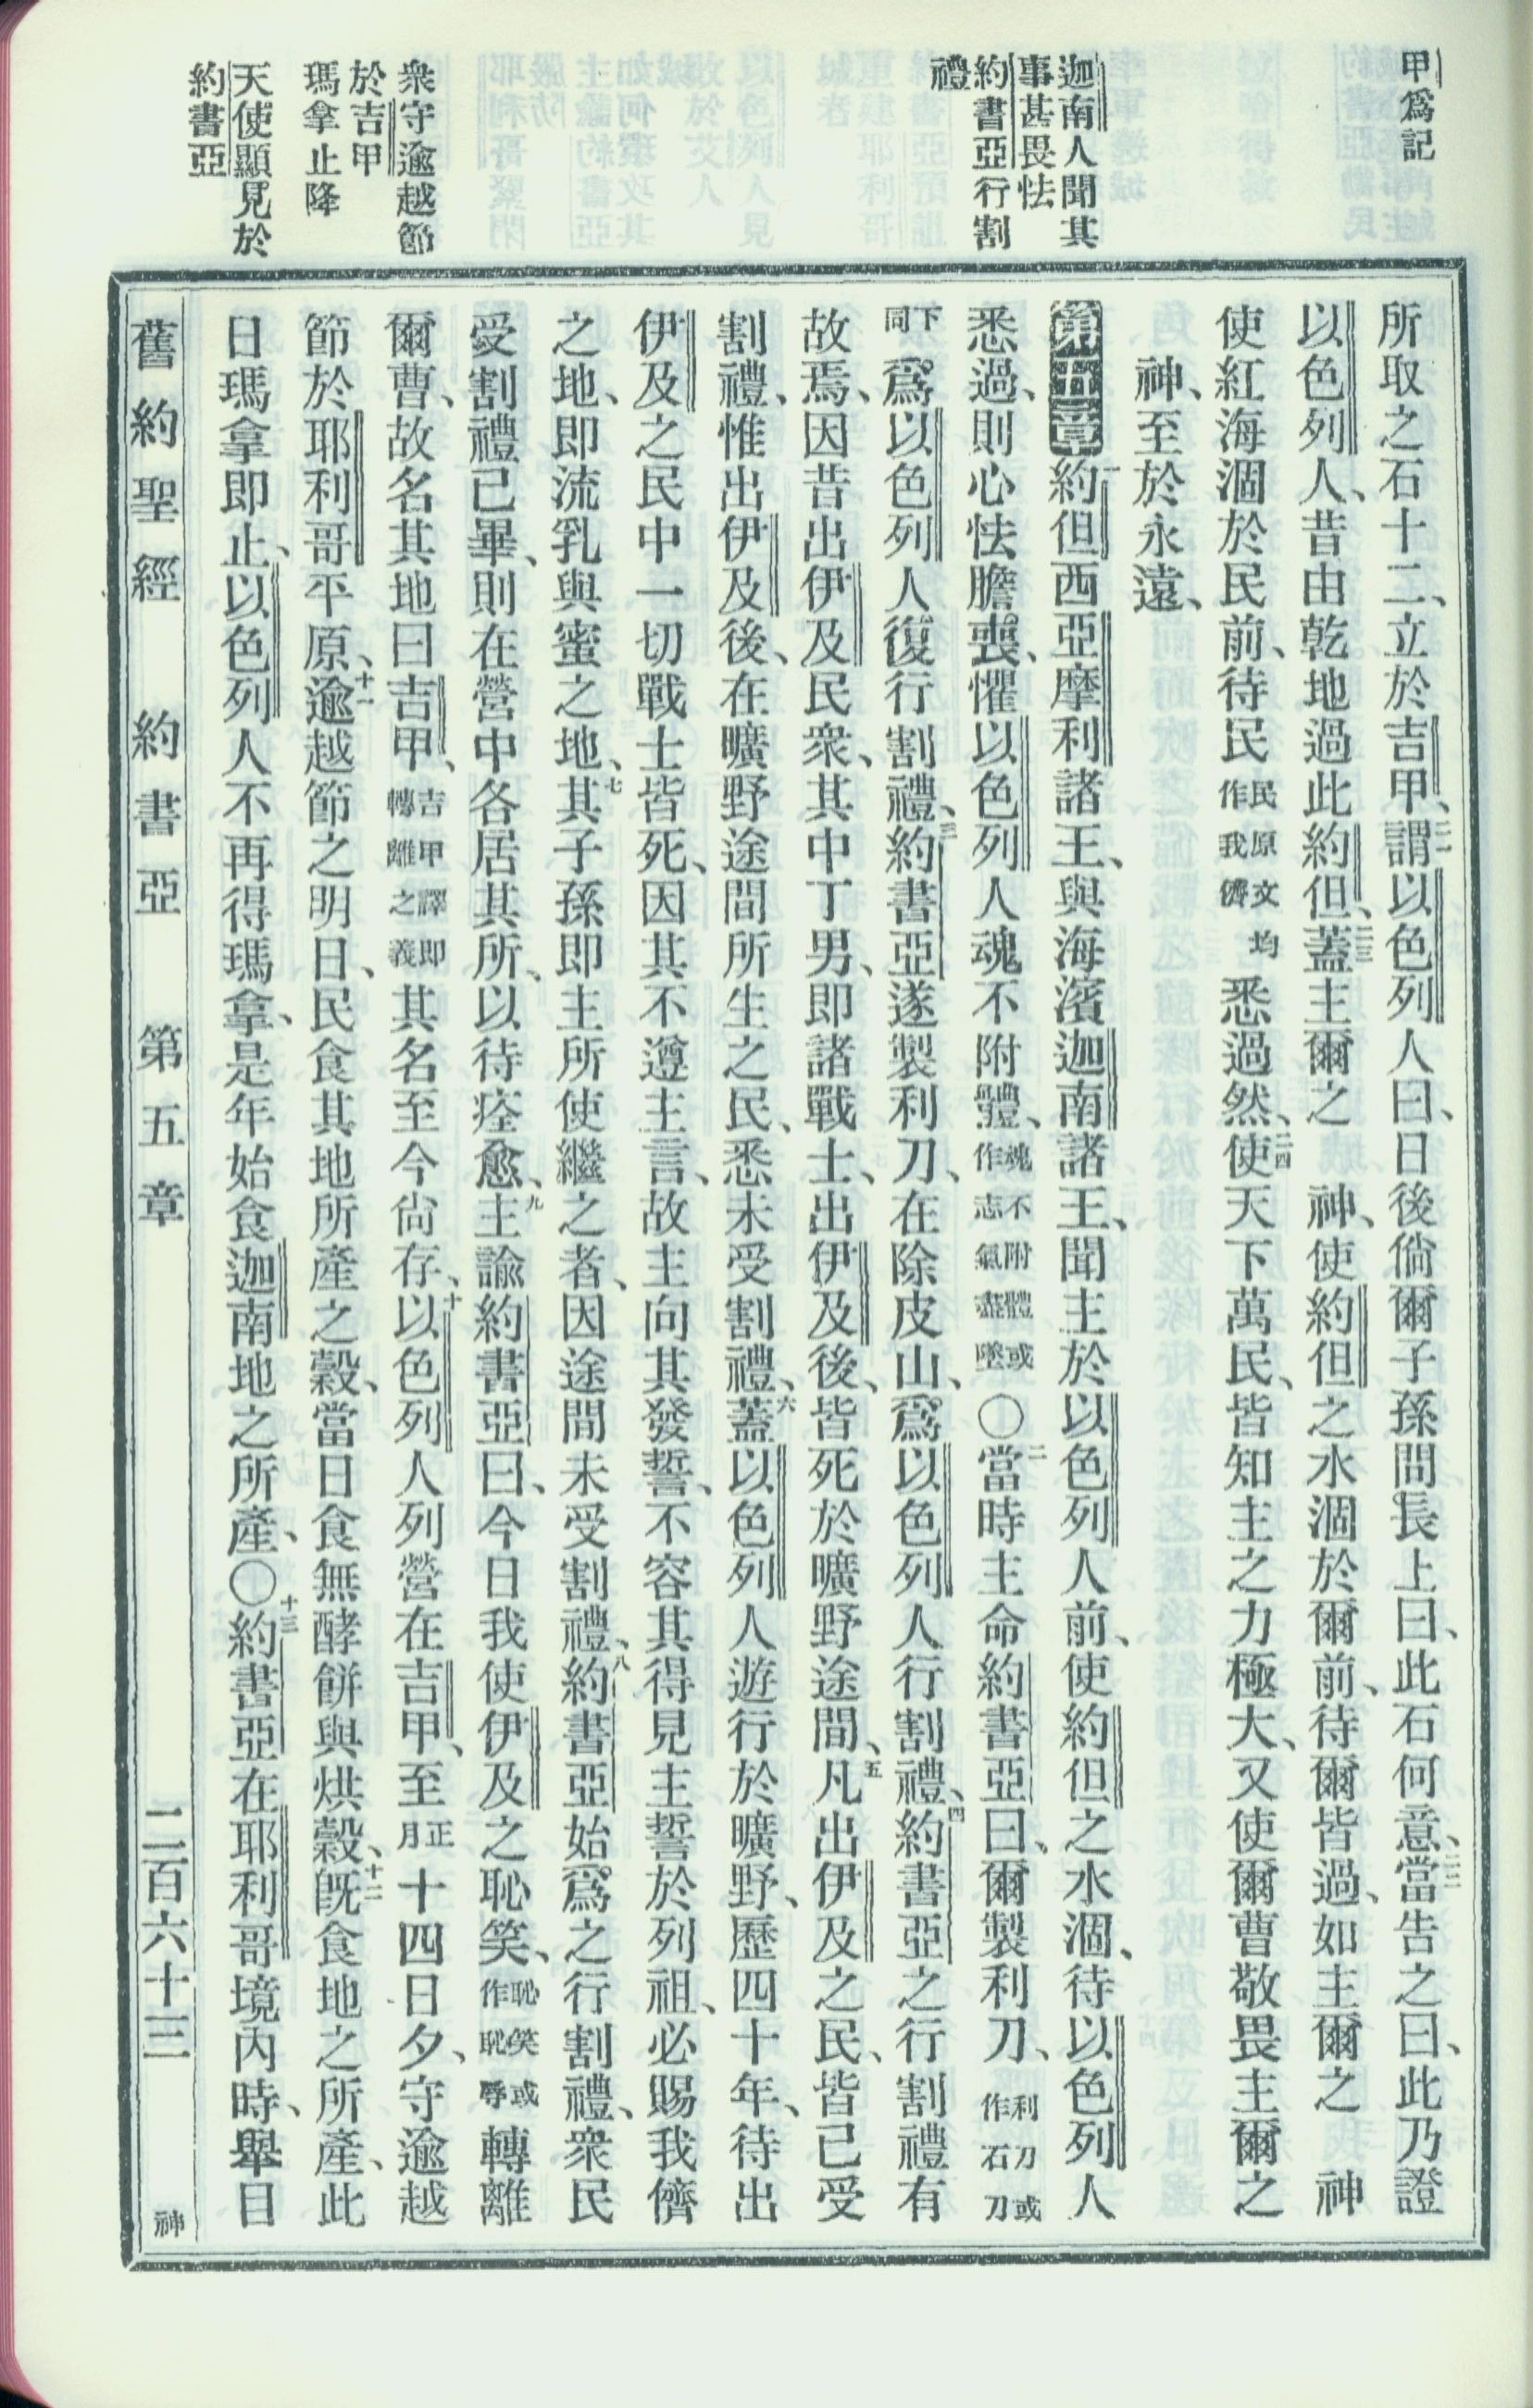 甲爲記
迦南人聞其
事甚畏怯
約書亞行割
禮
衆守逾越節
於吉甲
瑪拿止降
天使顯見於
約書亞
所取之石十二、立於吉甲、二一謂以色列人曰、日後倘爾子孫問長上曰、此石何意、二二當告之曰、此乃證
以色列人、昔由乾地過此約但、二三蓋主爾之　神、使約但之水涸於爾前、待爾皆過、如主爾之　神
使紅海涸於民前、待民民原文均作我儕悉過然、二四使天下萬民、皆知主之力極大、又使爾曹敬畏主爾之
神、至於永遠、
第五章一約但西亞摩利諸王、與海濱迦南諸王、聞主於以色列人前、使約但之水涸、待以色列人
悉過、則心怯膽喪、懼以色列人魂不附體、魂不附體或作志氣盡墜〇二當時主命約書亞曰、爾製利刀、利刀或作石刀
下同爲以色列人復行割禮、三約書亞遂製利刀、在除皮山、爲以色列人行割禮、四約書亞之行割禮有
故焉、因昔出伊及民衆、其中丁男、即諸戰士、出伊及後、皆死於曠野途間、五凡出伊及之民、皆已受
割禮、惟出伊及後、在曠野途間所生之民、悉未受割禮、六蓋以色列人遊行於曠野、歷四十年、待出
伊及之民中一切戰士皆死、因其不遵主言、故主向其發誓、不容其得見主誓於列祖、必賜我儕
之地、即流乳與蜜之地、七其子孫即主所使繼之者、因途間未受割禮、八約書亞始爲之行割禮、衆民
受割禮已畢、則在營中各居其所、以待痊愈、九主諭約書亞曰、今日我使伊及之恥笑、恥笑或作恥辱轉離
爾曹、故名其地曰吉甲、吉甲譯即轉離之義其名至今尙存、十以色列人列營在吉甲、至正月十四日夕、守逾越
節於耶利哥平原、十一逾越節之明日、民食其地所產之穀、當日食無酵餅與烘穀、十二旣食地之所產、此
日瑪拿即止、以色列人不再得瑪拿、是年始食迦南地之所產、〇十三約書亞在耶利哥境內時、舉目
舊約聖經　約書亞　第五章　二百六十三　神